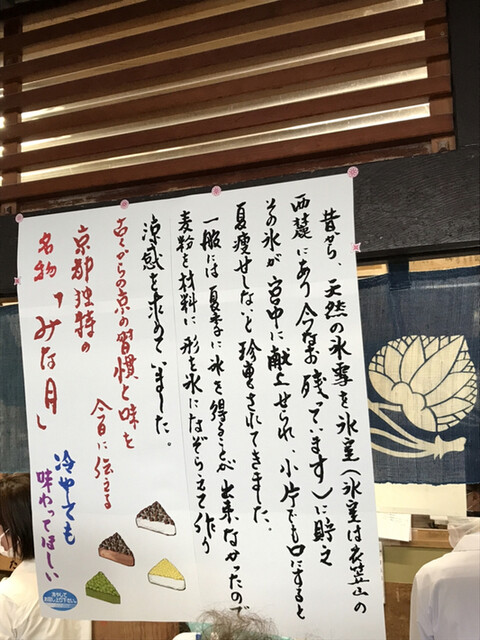 昔から、天然の氷雪を氷室(氷室は衣笠山の
西麓にあり今なお残っています)に貯え
その氷が宮中に献上せられ、小片でも口にすると
夏痩せしないと珍重されてきました。
一般には夏季に氷を得ることが出来なかったので
麦粉を材料に形を氷になぞらえて作り
涼感を求めていました。
古くからの京の習慣と味を
今日に伝える
京都独特の
名物「みな月」
冷やても
味わってほしい